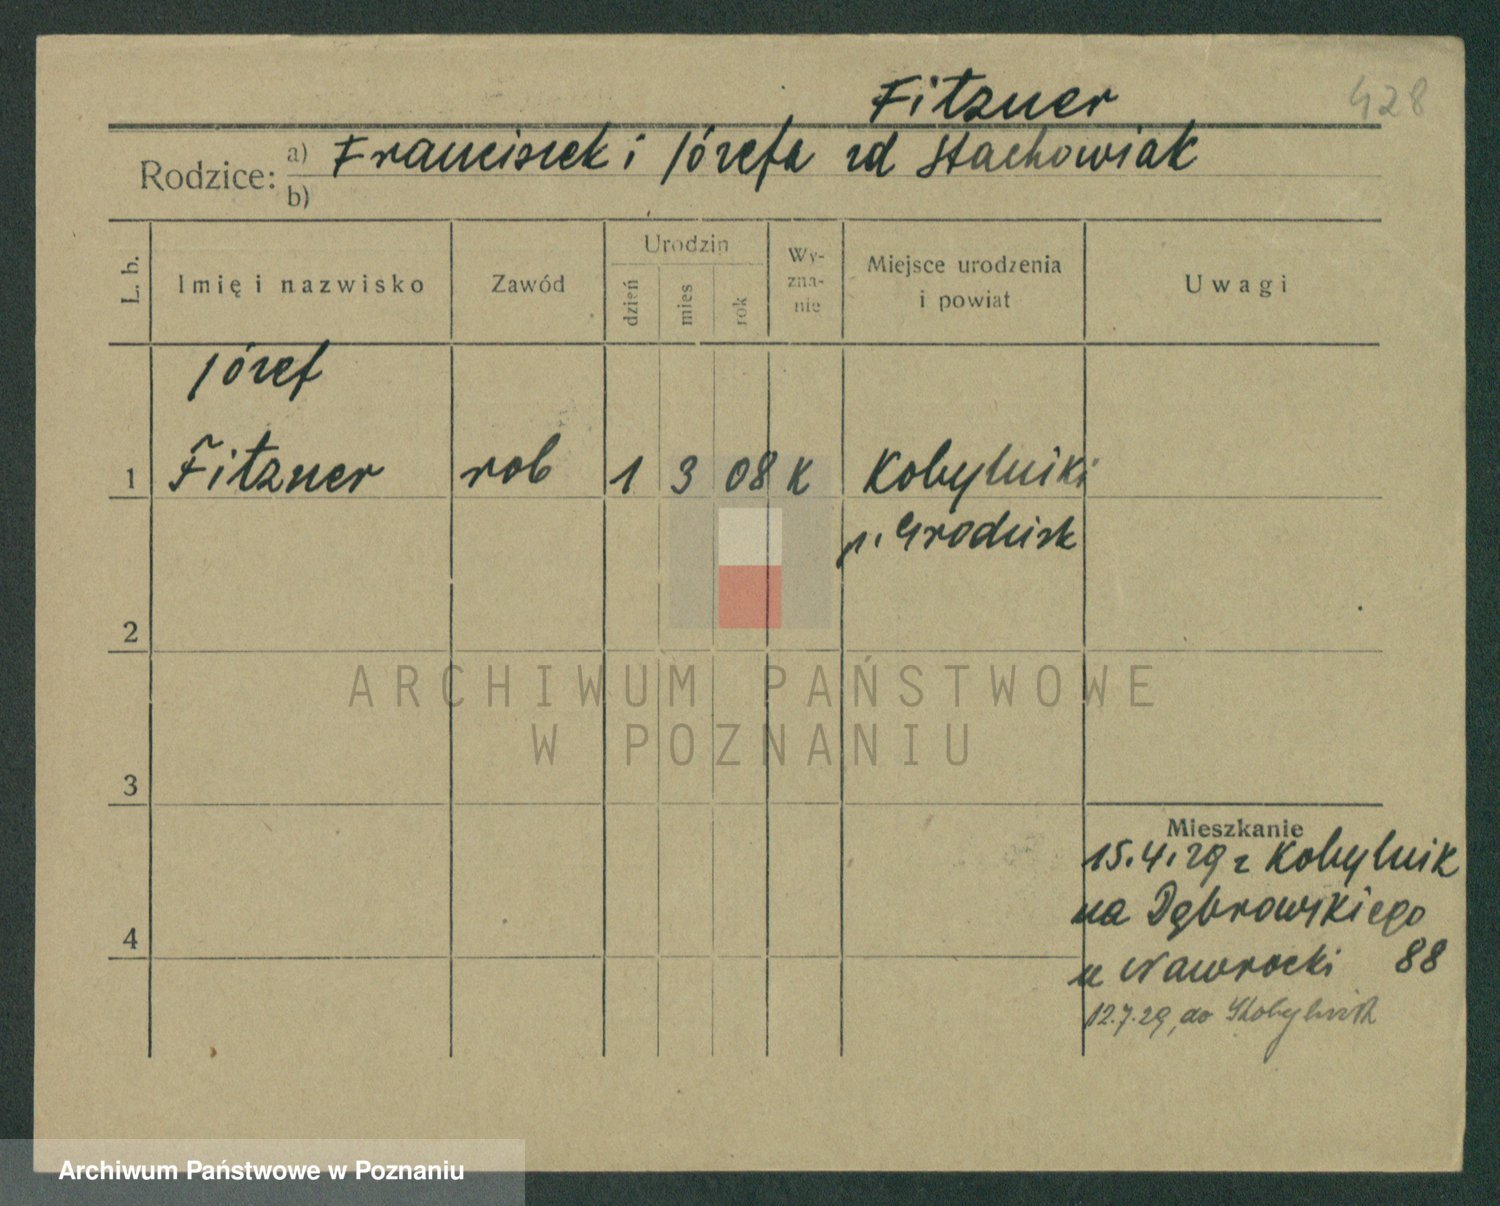 Fitzner 428
Rodzice: a) Franciszek i Józefa zd Stachowiak
b)
L. b. Imię i nazwisko Zawód Urodzin Wy-zna-nie Miejsce urodzenia i powiat Uwagi
dzień mies rok
Józef
1 Fitzner rob 1 3 08 K Kobylniki
p. Grodzisk
2
ARCHIWUM PAŃSTWOWE
W POZNANIU
3
Mieszkanie
15.4.29 z Kobylnik
na Dąbrowskiego
4
u Nawrocki 88
12.7.29, do Kobylnik
Archiwum Państwowe w Poznaniu